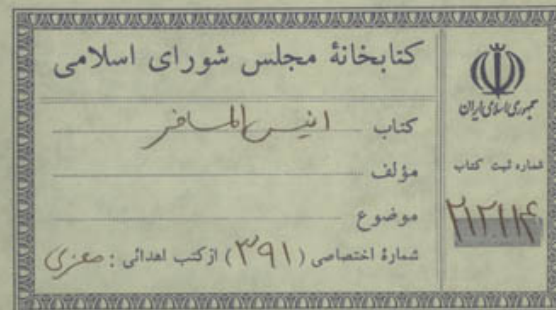 کتابخانهٔ مجلس شورای اسلامی
کتاب انیس المسافر
مؤلف
موضوع
شمارهٔ اختصاصی (۳۹۱) از کتب اهدائی : معزی
جمهوری اسلامی ایران
شماره ثبت کتاب
۲۱۲۱۱۴